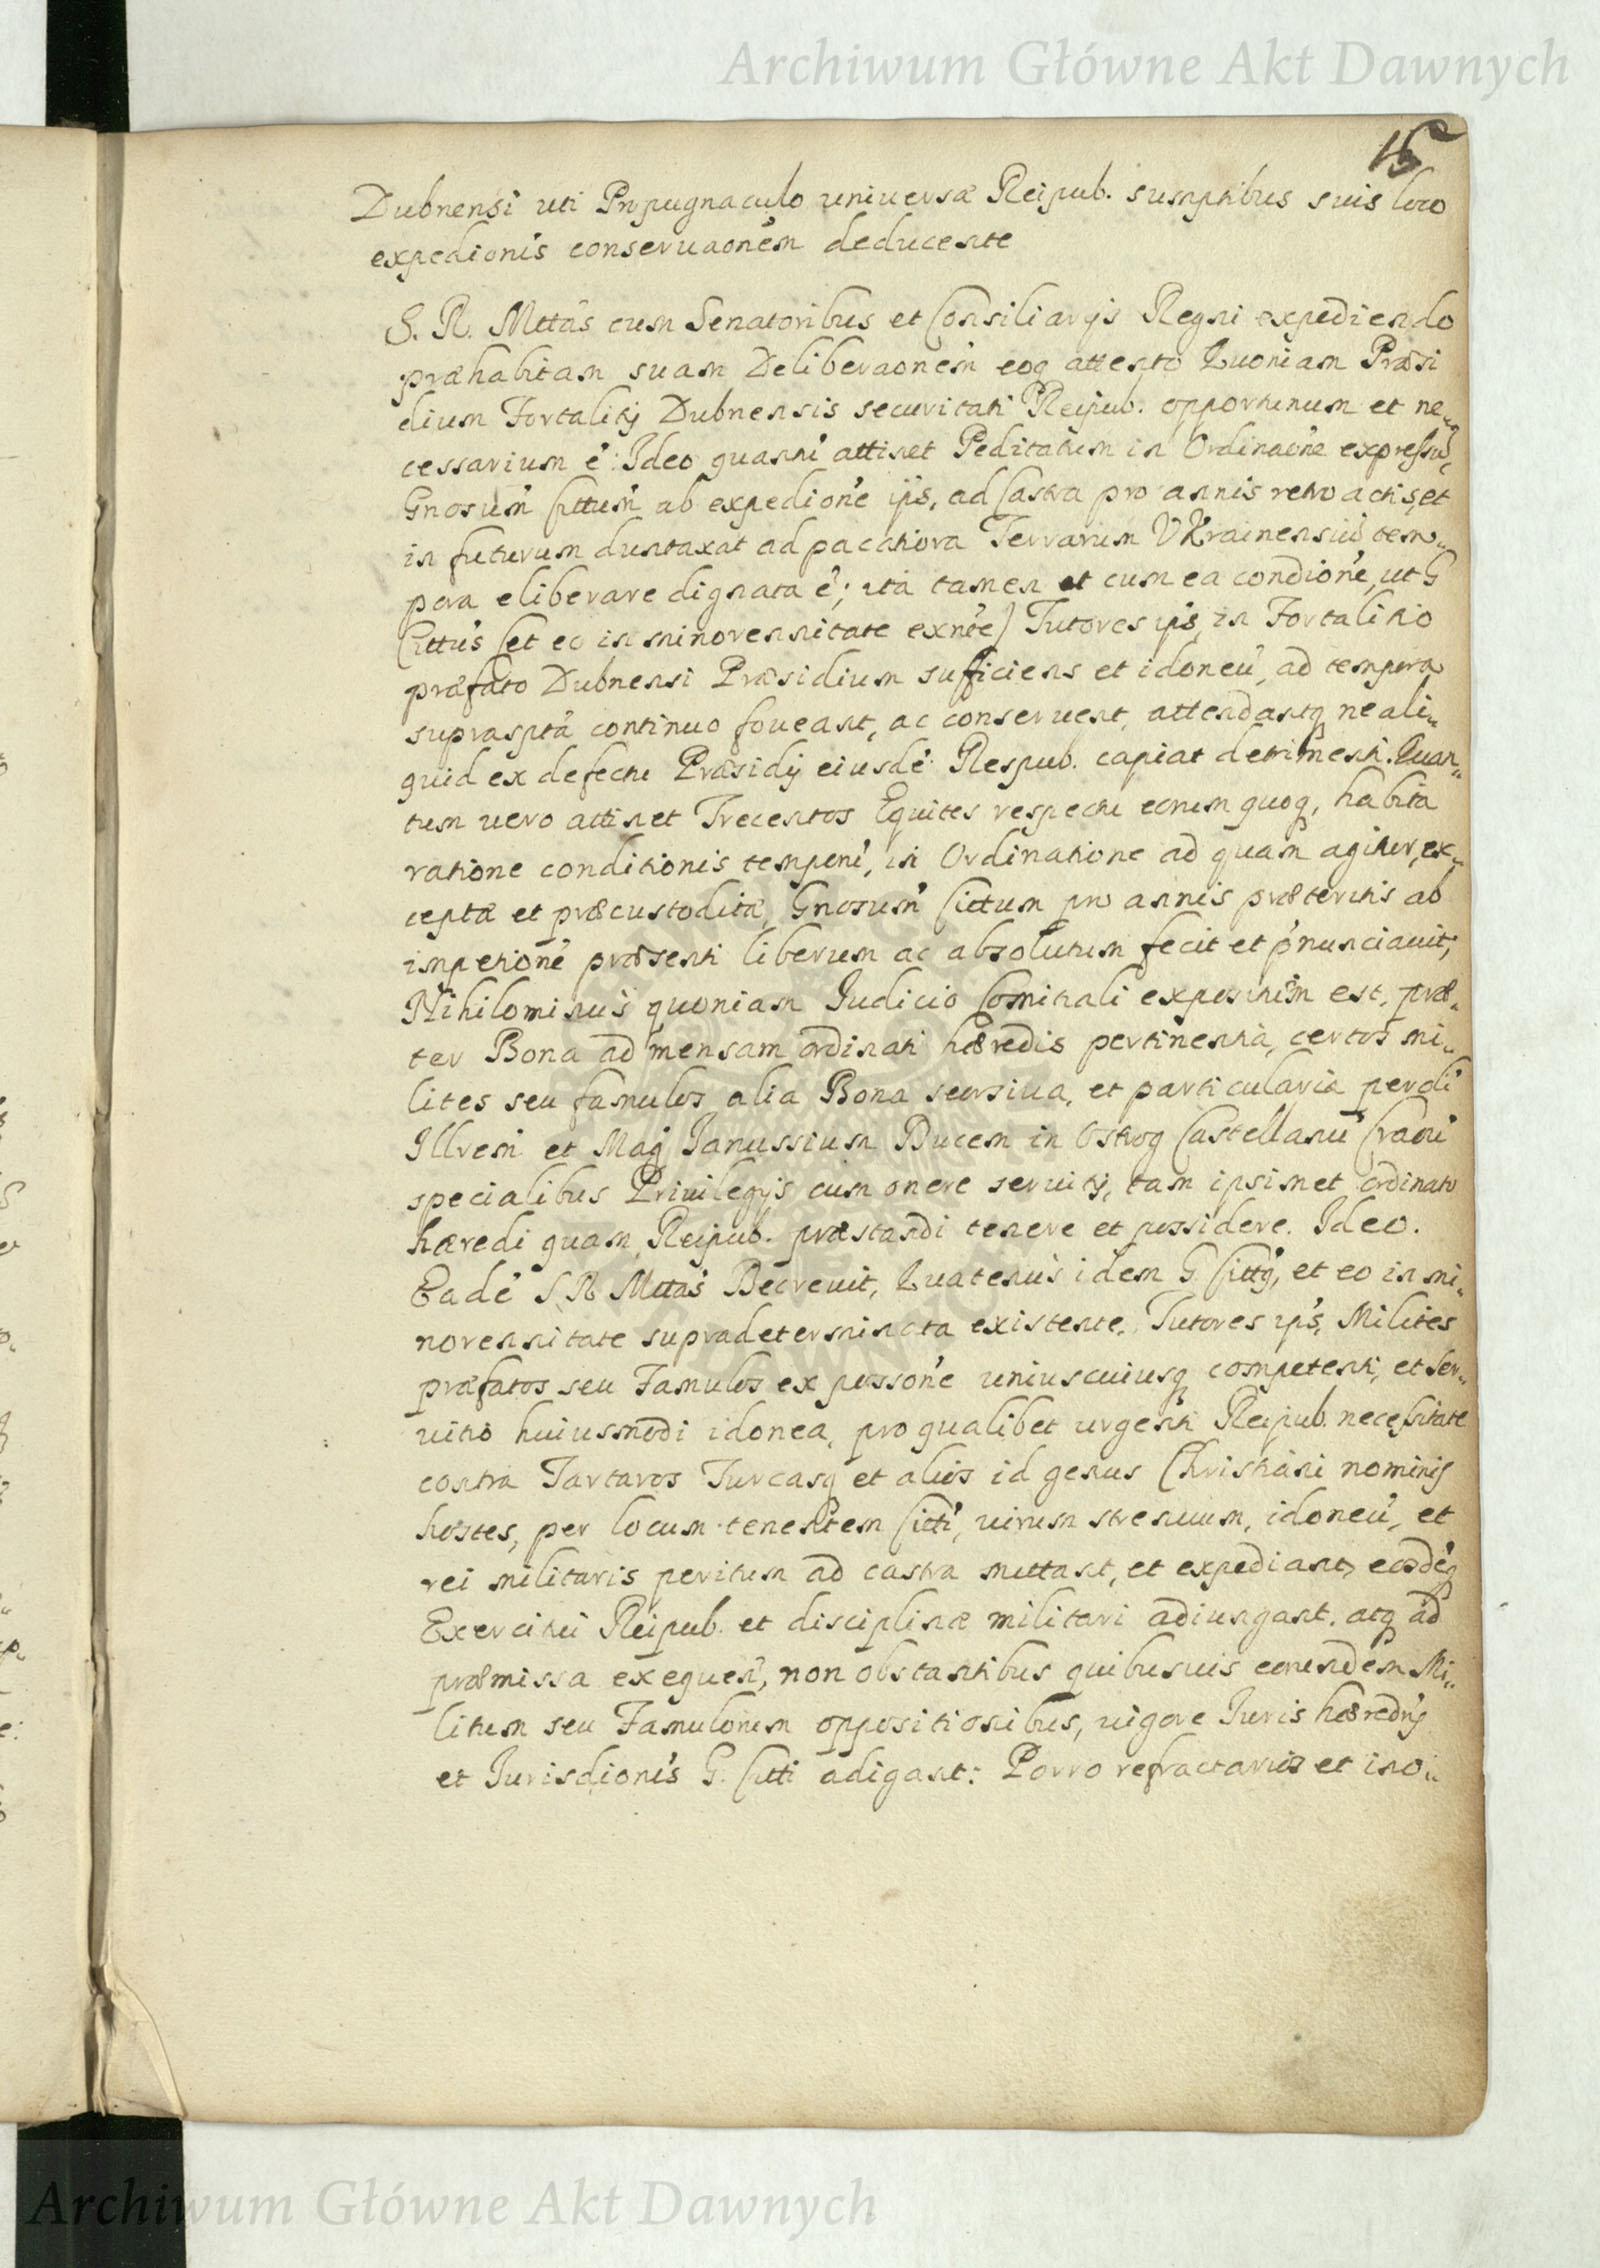 Archiwum Główne Akt Dawnych
15
Dubnensi uti Propugnaculo universæ Reipub. sumptibus suis loco
expedionis conservaonem deducente
S. R. Mttas cum Senatoribus et Consiliarijs Regni expediendo
præhabitam suam Deliberaonem eoq attento Quoniam Præsi
dium Fortalitij Dubnensis securitati Reipub. opportunum et ne„
cessarium é: Ideo quantú attinet Peditatum in Ordinaone expressú,
Gnosum Cittum ab expedione ijs, ad Castra pro annis retro actis, et
in futurum duntaxat ad pacatiora Terrarum Vkrainensiú tem„
pora eliberare dignata é; ita tamen et cum ea condione, ut G
Cittus (et eo in minorennitate exnte) Tutores ips, in Fortalitio
præfato Dubnensi Præsidium sufficiens et idoneú, ad tempora
suprasptá continuo foveant, ac conservent, attendantq ne ali„
quid ex defectu Præsidij eiusdé Respub. capiat detrimenti. Quan„
tum vero attinet Trecentos Equites respectu eorum quoq, habita
ratione conditionis temporú, in Ordinatione ad quam agitur, ex„
ceptæ et præcustoditæ, Gnosum Cittum pro annis præteritis ab
impetione præsenti liberum ac absolutum fecit et pnunciavit;
Nihilominus quoniam Iudicio Comitiali expositum est, præ„
ter Bona ad mensam ordinati hæredis pertinentia, certos mi„
lites seu famulos alia Bona seorsiva, et particularia per oli
Illrem et Mag Ianussium Ducem in Ostrog Castellanú Cracou
specialibus Privilegijs cum onere servitij, tam ipsimet ordinato
hæredi quam Reipub. præstandi tenere et possidere. Ideo.
Eadé S R Mttas Decrevit, Quatenus idem G Cittq, et eo in mi„
norennitate supradeterminata existente, Tutores ips, Milites
præfatos seu Famulos ex possone uniuscuiusq competenti, et ser„
vitio huiusmodi idonea, pro qualibet urgenti Reipub. necessitate
contra Tartaros Turcasq et alios id genus Christiani nominis
hostes, per locum tenentem Citti, virum strenuum, idoneú, et
rei militaris peritum ad castra mittant, et expediant, eosdéq
Exercitui Reipub. et disciplinæ militari adiungant. atq ad
præmissa exequen, non obstantibus quibusvis eorundem Mi„
litum seu Famulorum oppositionibus, vigore Iuris hæredrij
et Iurisdionis G. Citti adigant: Porro refractarios et ino„
Archiwum Główne Akt Dawnych